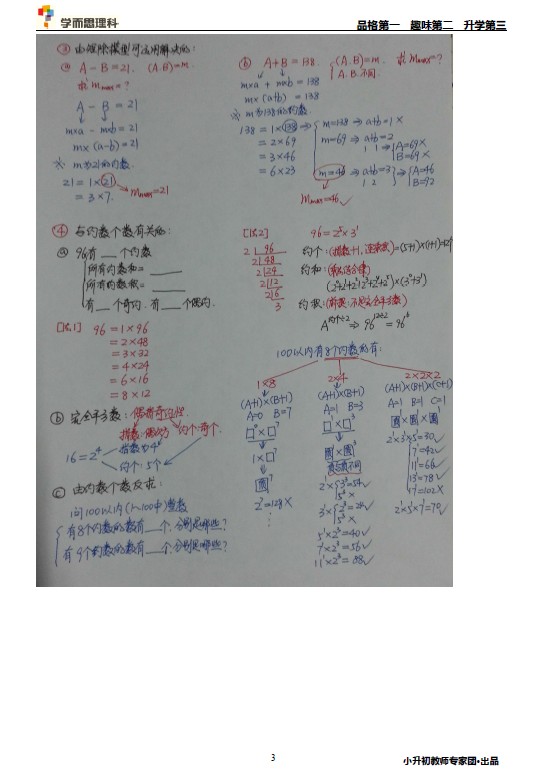 学而思理科
品格第一 趣味第二 升学第三
③ 由短除模型可运用解决的:
ⓐ A-B=21. (A.B)=m.
求 Mmax=?
A - B = 21
m×a - m×b = 21
m×(a-b)=21
※ m为21的约数.
21 = 1×21
= 3×7.
Mmax=21
ⓑ A+B=138. (A.B)=m. 求Mmax=?
A.B.不同.
m×a + m×b = 138
m×(a+b) = 138
※ m为138的约数.
138 = 1×138
= 2×69
= 3×46
= 6×23
m=138⇒a+b=1×
m=69⇒a+b=2
1 1
A=69×
B=69×
m=46⇒a+b=3
1 2
A=46
B=92
Mmax=46✓
④ 与约数个数有关的:
ⓐ 96有___个约数
所有约数和=____
所有约数积=____
有___个奇约.有___个偶约.
[法1] 96 = 1×96
= 2×48
= 3×32
= 4×24
= 6×16
= 8×12
[法2] 96=2⁵×3¹
2 96
2 48
2 24
2 12
2 6
3
约个:(指数+1,连乘)=(5+1)×(1+1)=12个
约和:
(2⁰+2¹+2²+2³+2⁴+2⁵)×(3⁰+3¹)
约积:(前提:不是完全平方数)
A^约个÷2 ⇒ 96^12÷2 = 96⁶
ⓑ 完全平方数:偶指奇约性.
指数:偶数 约个:奇个.
16=2⁴
指数为4
约个:5个
ⓒ 由约数个数反求:
问100以内(1~100中)整数
有8个约数的数有___个.分别是哪些?
有9个约数的数有___个.分别是哪些?
100以内有8个约数的有:
1×8
(A+1)×(B+1)
A=0 B=7
□⁰×□⁷
1×□⁷
2⁷=128×
2×4
(A+1)×(B+1)
A=1 B=3
□¹×□³
2×3³=54✓
5³×
3×2³=24✓
5³×
5¹×2³=40✓
7¹×2³=56✓
11¹×2³=88✓
2×2×2
(A+1)×(B+1)×(C+1)
A=1 B=1 C=1
2¹×3¹×5¹=30✓
7¹=42✓
11¹=66✓
13=78✓
17=102×
2¹×5¹×7=70✓
3
小升初教师专家团·出品